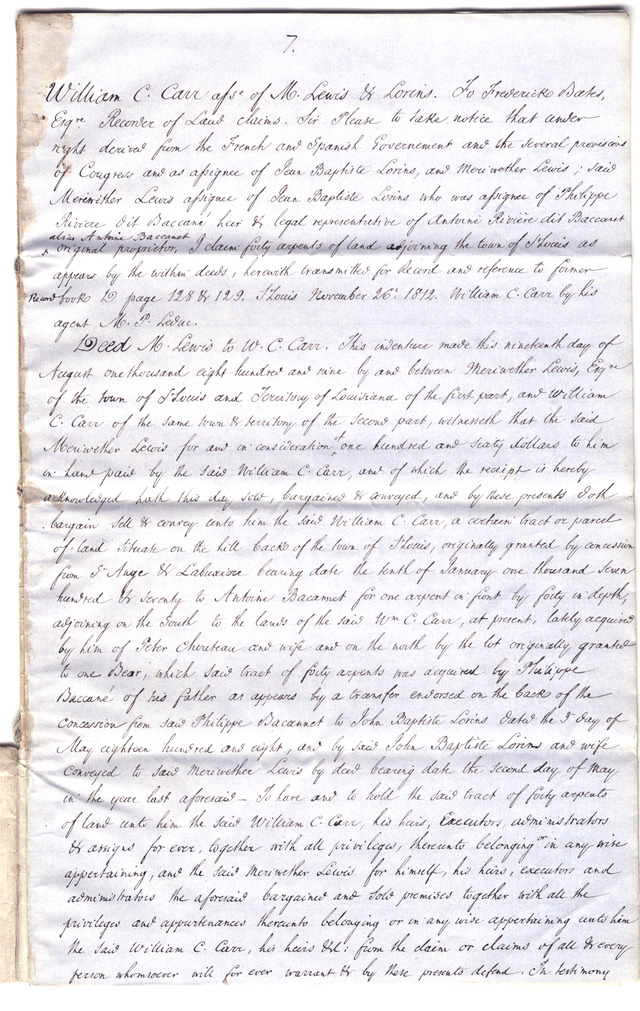 7.
William C. Carr asse of M. Lewis & Lorins. To Frederick Bates,
Esqre Recorder of Land claims. Sir Please to take notice that under
right derived from the French and Spanish Governement and the several provisions
of Congress and as assignee of Jean Baptiste Lorins, and Meriwether Lewis; said
Meriwether Lewis assignee of Jean Baptiste Lorins who was assignee of Philippe
Rivière dit Baccané heir & legal representative of Antoine Rivière dit Baccanet
alias Antoine Baccanet
original proprietor, I claim forty arpents of land adjoining the town of St Louis as
appears by the within deeds, herewith transmitted for Record and reference to former
Record book D page 128 & 129. St Louis November 26th 1812. William C. Carr by his
agent M. P. Leduc.
Deed M. Lewis to W. C. Carr. This indenture made this nineteenth day of
August one thousand eight hundred and nine by and between Meriwether Lewis, Esqre
of the town of St Louis and Territory of Louisiana of the first part, and William
C. Carr of the same town & territory of the second part, witnesseth that the said
Meriwether Lewis for and in consideration of one hundred and sixty dollars to him
in hand paid by the said William C. Carr, and of which the receipt is hereby
acknowledged hath this day sold, bargained & conveyed, and by these presents doth
bargain sell & convey unto him the said William C. Carr, a certain tract or parcel
of land situate on the hill back of the town of St Louis, originally granted by concession
from St Ange & Labuxiere bearing date the tenth of January one thousand seven
hundred & seventy to Antoine Bacannet for one arpent in front by forty in depth,
adjoining on the South to the lands of the said Wm C. Carr, at present, lately acquired
by him of Peter Chouteau and wife and on the north by the lot originally granted
to one Bear; which said tract of forty arpents was acquired by Philippe
Baccané of his father as appears by a transfer endorsed on the back of the
concession from said Philippe Bacannet to John Baptiste Lorins dated the day of
May eighteen hundred and eight, and by said John Baptiste Lorins and wife
conveyed to said Meriwether Lewis by deed bearing date the second day of May
in the year last aforesaid – To have and to hold the said tract of forty arpents
of land unto him the said William C. Carr, his heirs, Executors, administrators
& assigns for ever, together with all privileges, thereunto belonging or in any wise
appertaining, and the said Meriwether Lewis for himself, his heirs, executors and
administrators the aforesaid bargained and sold premises together with all the
privileges and appurtenances thereunto belonging or in any wise appertaining unto him
the said William C. Carr, his heirs &c: from the claim or claims of all & every
person whomsoever will for ever warrant & by these presents defend. In testimony